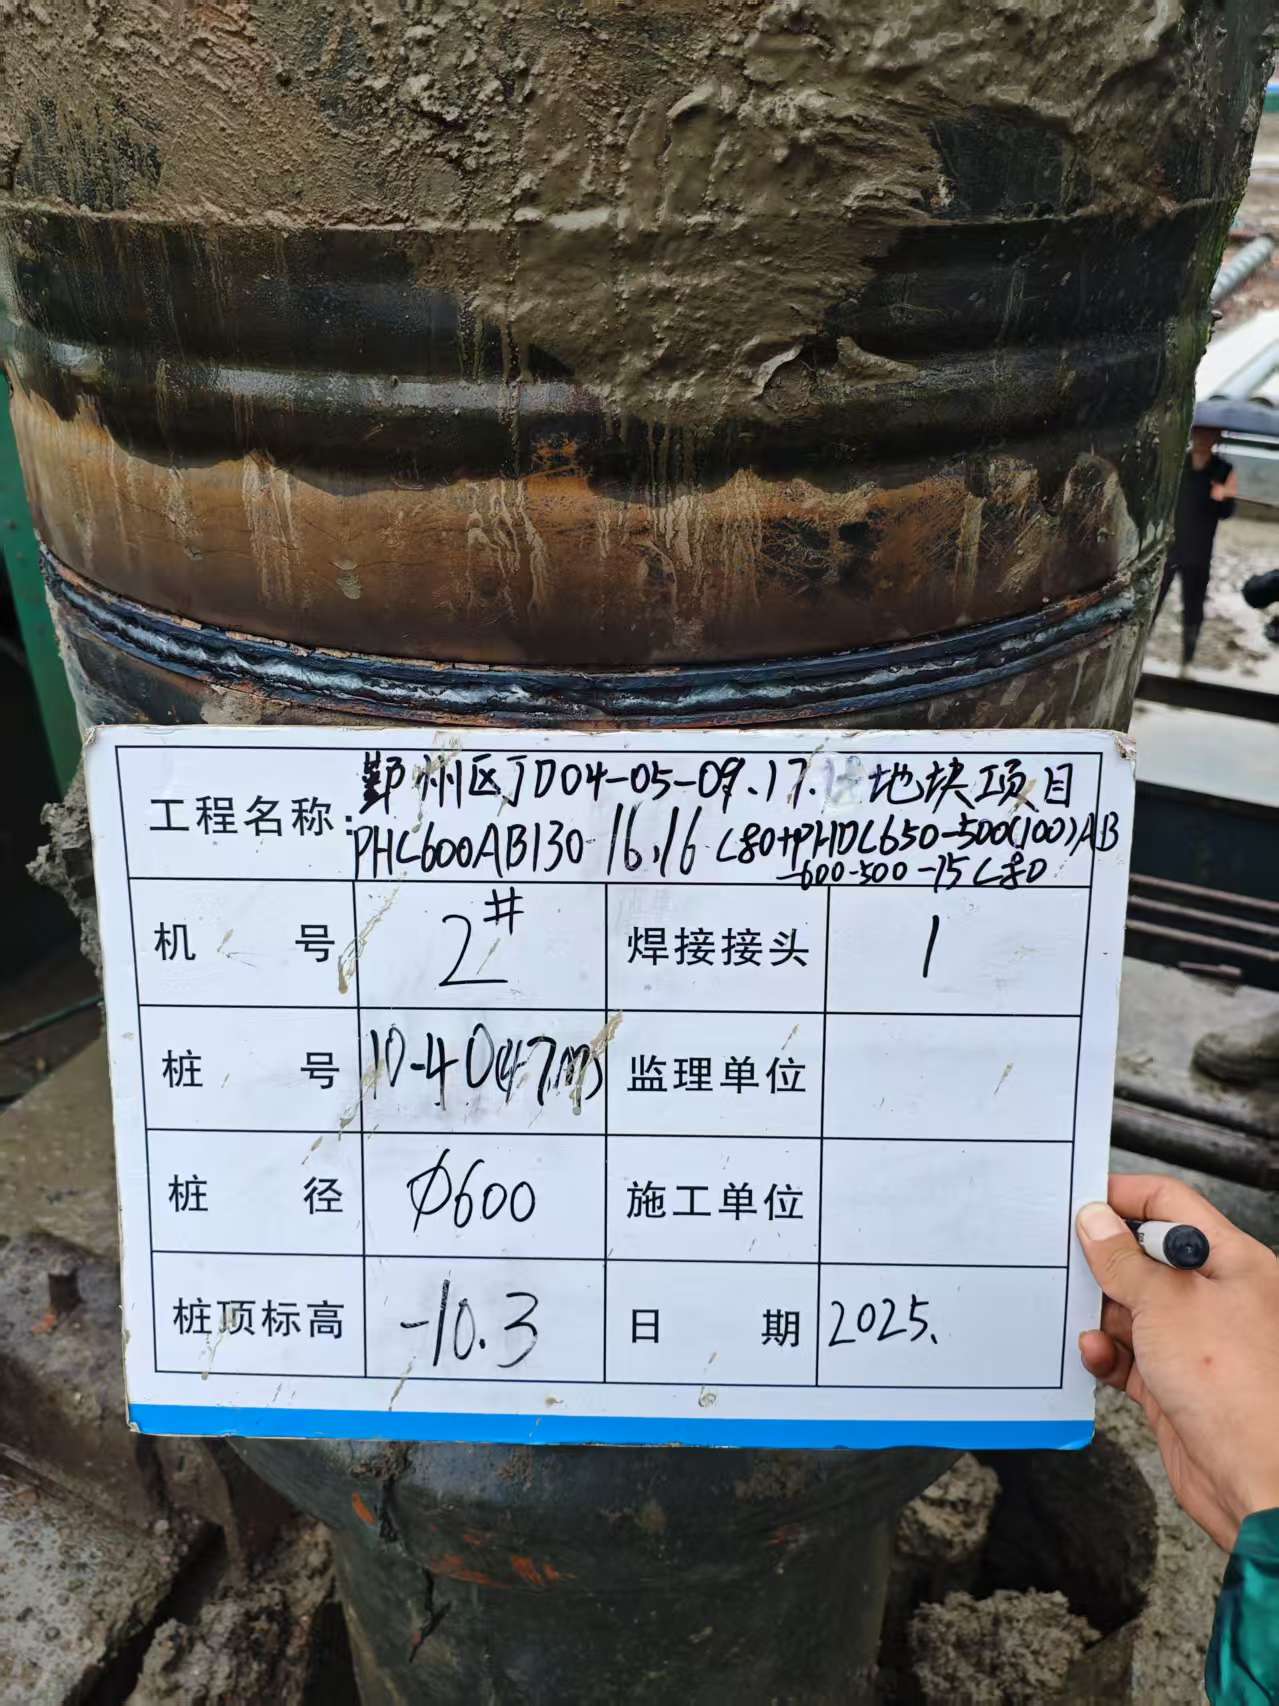 工程名称:
鄞州区JD04-05-09.17. 地块项目
PHC600AB130-16,16 C80+PHDC650-500(100)AB
-600-500-15 C80
机 号 2# 焊接接头 1
桩 号 10-40(47m) 监理单位
桩 径 φ600 施工单位
桩顶标高 -10.3 日 期 2025.